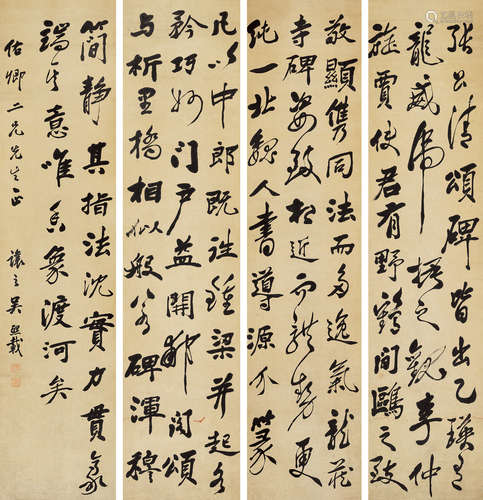 張公清頌碑皆出乙瑛有
龍威虎振之觀李仲
璇賈使君有野鶴閒鷗之致
敬顯儁同法而多逸氣龍藏
寺碑姿致相近而體勢更
純一北魏人書導源分篆
凡以中郎既往鍾梁并起各
矜巧妙門戶益開郙閣頌
與析里橋相似般若碑渾穆
簡靜其指法沈實力貫毫
端意唯香象渡河矣
佑卿二兄先生正 讓之吳熙載